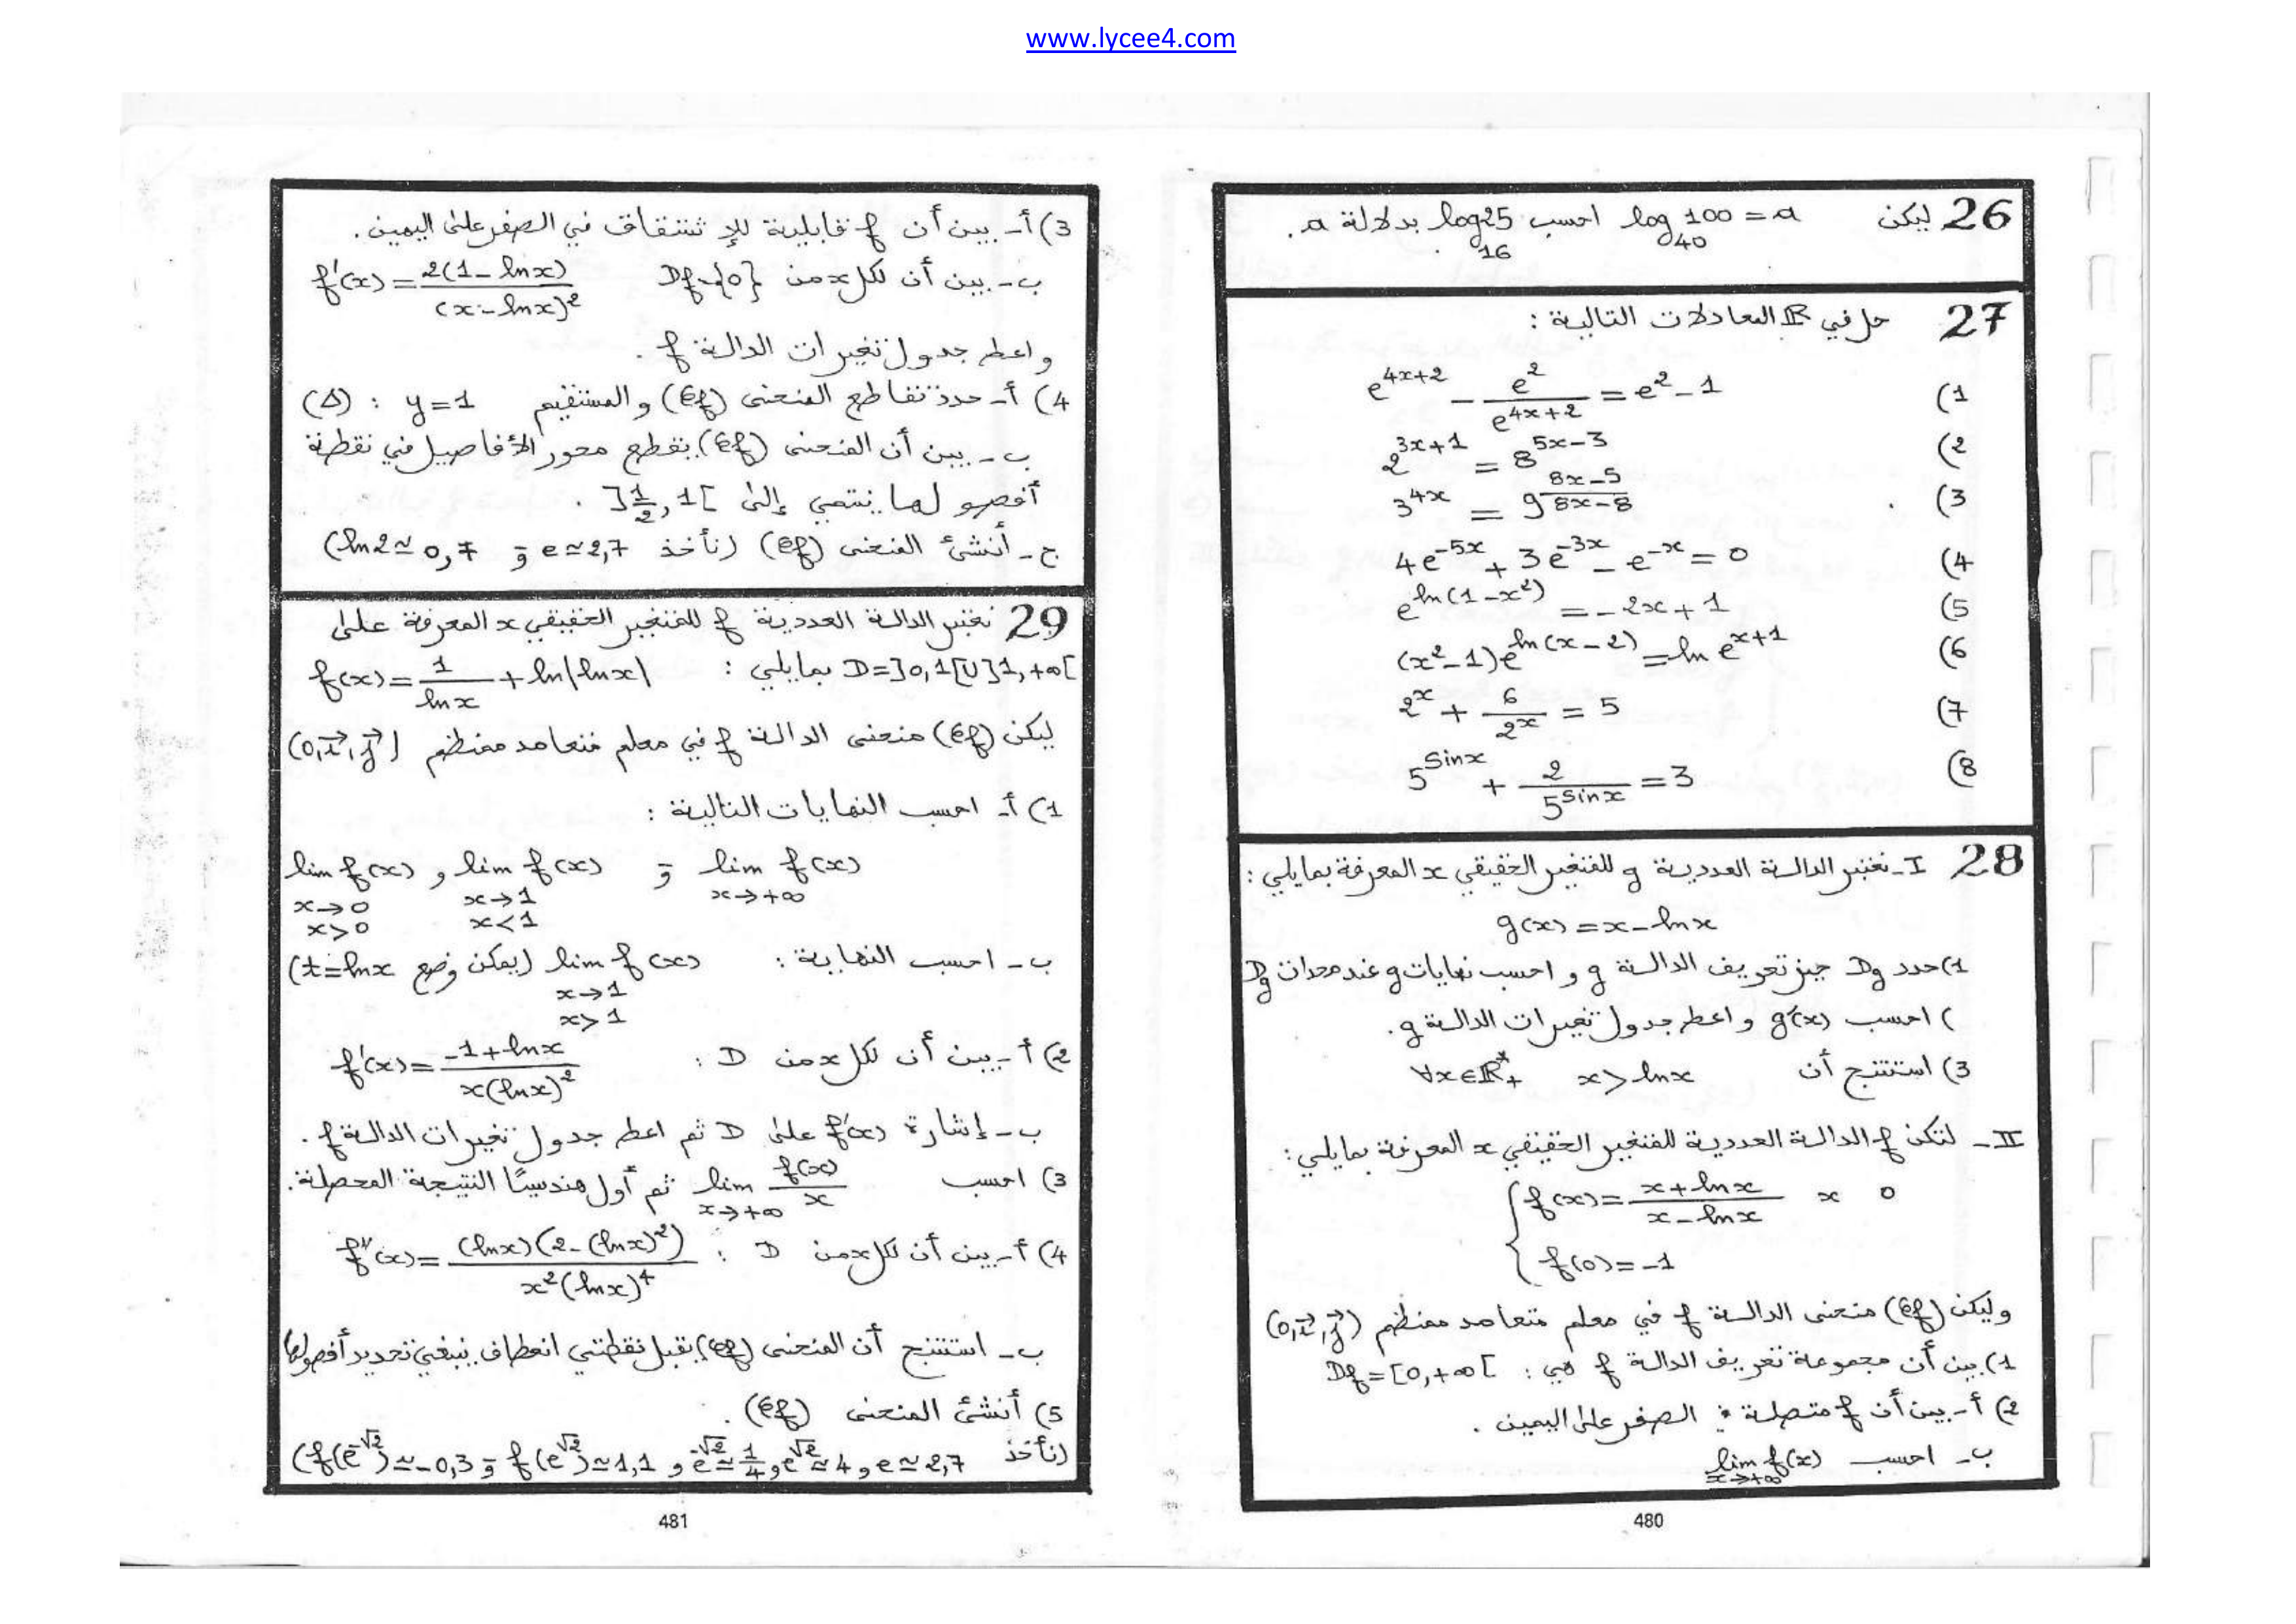 www.lycee4.com
26 ليكن log₄₀ 100 = a احسب log₁₆ 25 بدلالة a .
27 حل في ℝ المعادلات التالية :
1) e^{4x+2} - e^2/e^{4x+2} = e^2 - 1
2) 2^{3x+1} = 8^{5x-3}
3) 3^{4x} = 9^{(8x-5)/(8x-8)}
4) 4e^{-5x} + 3e^{-3x} - e^{-x} = 0
5) e^{ln(1-x^2)} = -2x+1
6) (x^2-1)e^{ln(x-2)} = ln e^{x+1}
7) 2^x + 6/2^x = 5
8) 5^{sinx} + 2/5^{sinx} = 3
28 I - نعتبر الدالة العددية g للمتغير الحقيقي x المعرفة بمايلي :
g(x) = x - lnx
1) حدد Dg حيز تعريف الدالة g و احسب نهايات g عند محدات Dg
) احسب g'(x) و اعط جدول تغيرات الدالة g.
3) استنتج أن ∀x∈ℝ*₊ x > lnx
II - لتكن f الدالة العددية للمتغير الحقيقي x المعرفة بمايلي :
{ f(x) = (x+lnx)/(x-lnx) x 0
f(0) = -1
وليكن (Cf) منحنى الدالة f في معلم متعامد ممنظم (0, i⃗, j⃗)
1) بين أن مجموعة تعريف الدالة f هي : Df = [0, +∞[
2) أ - بين أن f متصلة في الصفر على اليمين .
ب - احسب lim f(x) x→+∞
480
3) أ - بين أن f قابلية للإ شتقاق في الصفر على اليمين .
ب - بين أن لكل x من Df-{0} f'(x) = 2(1-lnx)/(x-lnx)^2
و اعط جدول تغيرات الدالة f .
4) أ - حدد تقاطع المنحنى (Cf) و المستقيم (Δ) : y = 1
ب - بين أن المنحنى (Cf) يقطع محور الأفاصيل في نقطة
أفصو لها ينتمي إلى ]1/2 , 1[ .
ج - أنشئ المنحنى (Cf) (نأخذ e ≃ 2,7 و ln2 ≃ 0,7)
29 نعتبر الدالة العددية f للمتغير الحقيقي x المعرفة على
D = ]0,1[∪]1,+∞[ بمايلي : f(x) = 1/lnx + ln|lnx|
ليكن (Cf) منحنى الدالة f في معلم متعامد ممنظم (0, i⃗, j⃗)
1) أ - احسب النهايات التالية :
lim f(x) x→+∞ و lim f(x) x→1 x<1 و lim f(x) x→0 x>0
ب - احسب النهاية : lim f(x) x→1 x>1 (يمكن وضع t = lnx)
2) أ - بين أن لكل x من D : f'(x) = (-1+lnx)/(x(lnx)^2)
ب - إشارة f'(x) على D ثم اعط جدول تغيرات الدالة f .
3) احسب lim f(x)/x x→+∞ ثم أول هندسيًا النتيجة المحصلة.
4) أ - بين أن لكل x من D : f''(x) = (lnx)(2-(lnx)^2)/(x^2(lnx)^4)
ب - استنتج أن المنحنى (Cf) يقبل نقطتي انعطاف ينبغي تحديد أفصولها
5) أنشئ المنحنى (Cf) .
(نأخذ e ≃ 2,7 و e^{√2} ≃ 4 و e^{-√2} ≃ 1/4 و f(e^{√2}) ≃ 1,1 و f(e^{-√2}) ≃ -0,3)
481